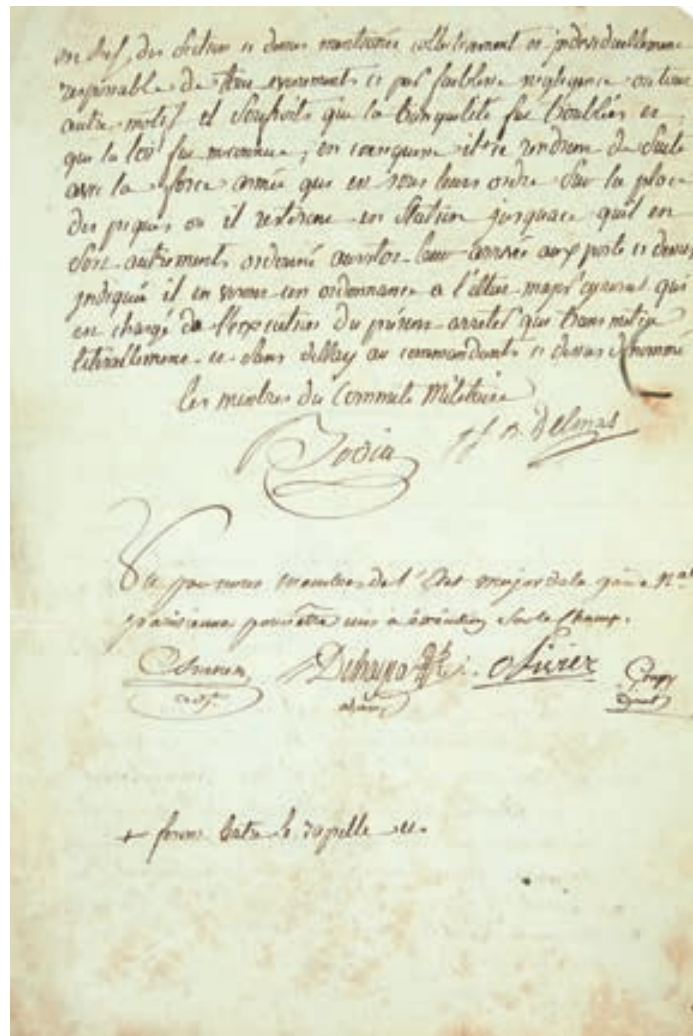 en chef, des section ci dessus mentionée collectivement et individuellement
responsable de tous evenements si par faiblesse negligence ou tout
autre motif il souffroits que la tranquilité fut troublée et
que la loi fut meconnue, en consequence ils + se rendront de suite
avec la force armée qui est sous leurs ordre sur la place
des piques ou il resteront en station jusqu'ace qu'il en
soit autrements ordonné aussitot leur arrivée aux poste ci dessus
indiquée il en verront un ordonnance a l'état major general qui
est chargé de l'execution du présent arretés qui transmettra
litérallement et sans dellay au commandants ci dessus nommé
Les membres du Committé Militaire
Jovia J. B. Delmas
Vu par nous membres de l'Etat major de la garde Nale
parisienne pour être mis à éxécution sur le champ.
Dehureau olivier
adjoint
+ feront batre le rapelle et